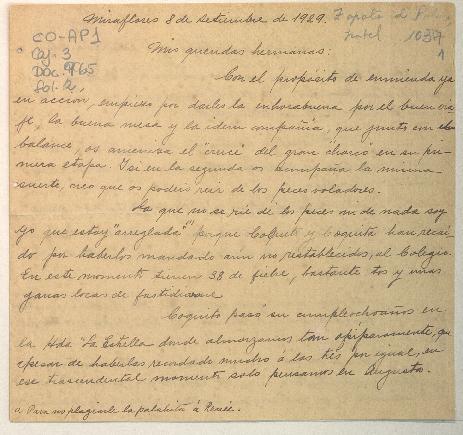 Miraflores 8 de setiembre de 1929.
Zapata de
1037
CO-AP1
Caj. 3
Doc. 965
Fol. 2
Mis queridas hermanas:
Con el propósito de enmienda ya
en acción, empiezo por darles la enhorabuena por el buen via
je, la buena mesa y la idem compañía, que junto con el
balance, os ameniza el "cruce" del gran "charco" en su pri-
mera etapa. Y si en la segunda os acompaña la misma
suerte, creo que os podéis reir de los peces voladores.
La que no se rie de los peces ni de nada soy
yo que estoy "arreglada" porque Coquito y Coquita han recaí
do por haberlos mandado aún no restablecidos, al Colegio.
En este momento tienen 38 de fiebre, bastante tos y unas
ganas locas de fastidiar
Coquito pasó su cumpleochoaños en
la Hda "La Estrella" donde almorzamos tan opíparamente, que
apesar de haberlas recordado mucho á las tres por igual, en
ese trascendental momento solo pensamos en Augusta.
a Para no plagiarle la palabrita á Renée.